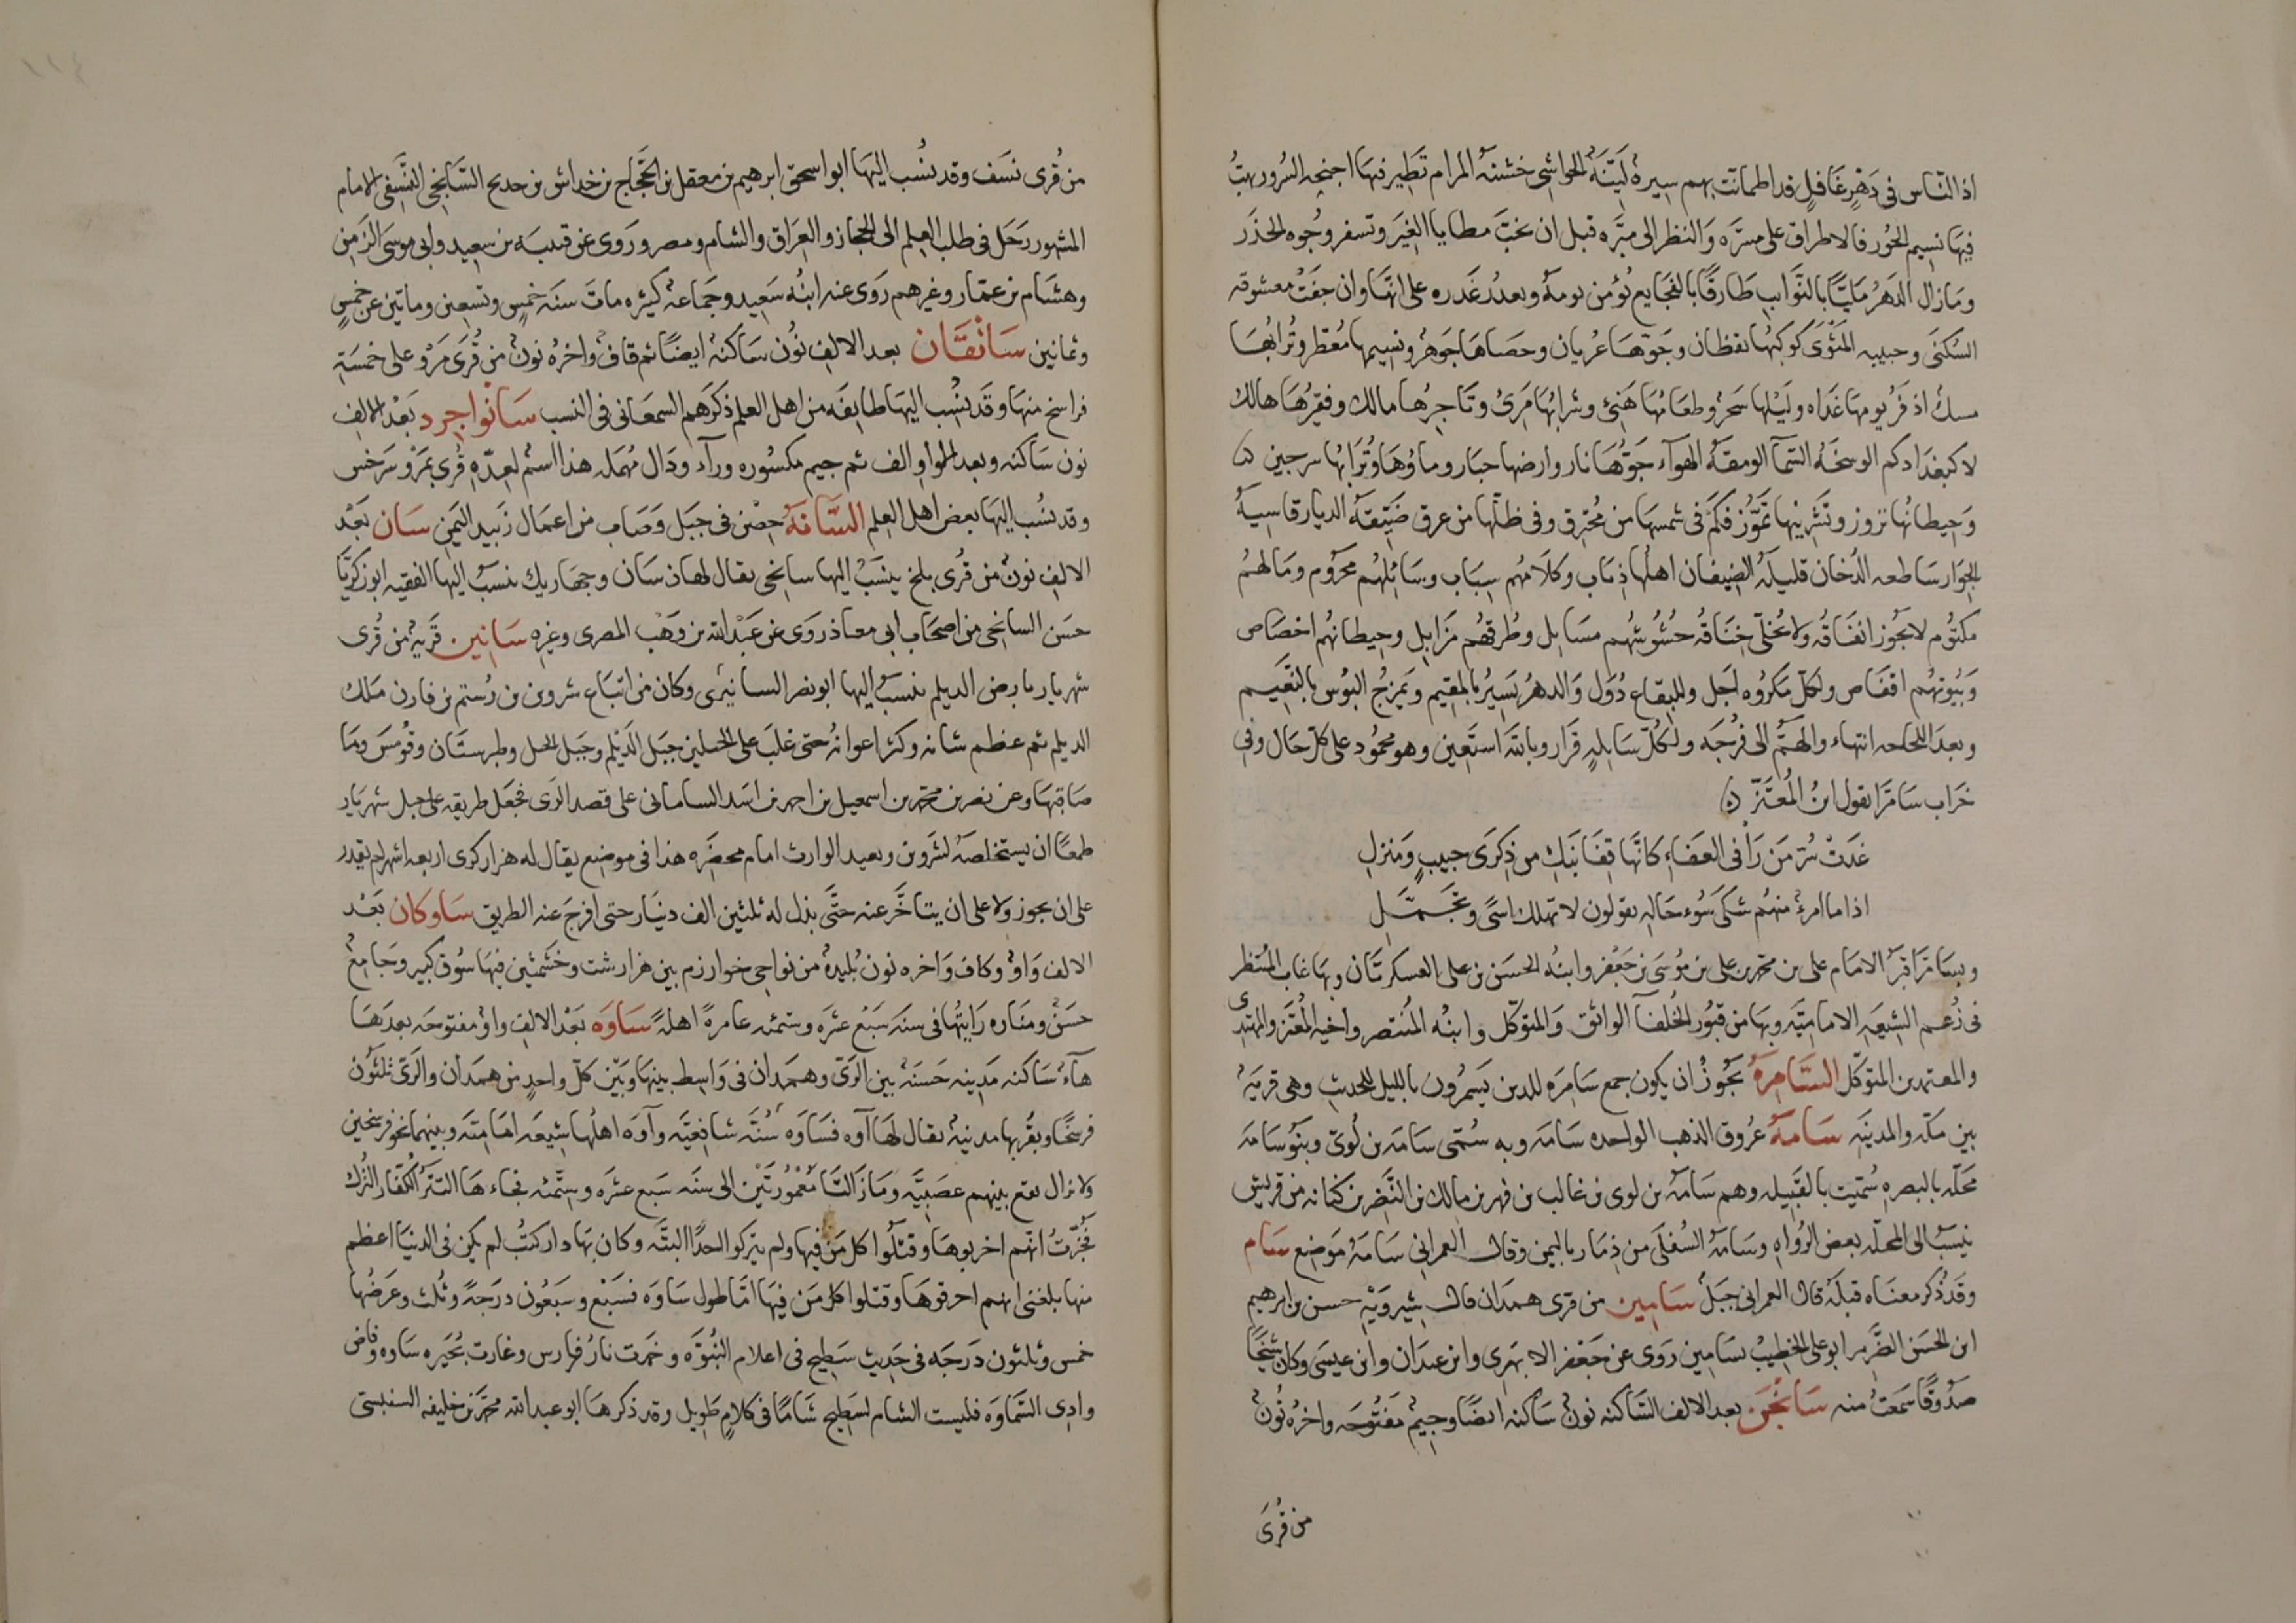 اذ الناس فى دهر غافل قد اطمانت بهم سيرة لينة الحواشى خشنة المرام تطير فيها اجنحه السرور يهب
فيها نسيم الحور فالاطراق على مسره والنظر الى مبره قبل ان تخب مطايا الغير وتسفر وجوه الحذر
وما زال الدهر مليا بالنوايب طارقا بالفجايع يؤمن يومه ويعدر غدره على انها وان جفت معشوقه
السكنى وحبيبه المثوى كوكبها يقظان وجوها عريان وحصاها جوهر ونسيمها معطر وترابها
مسك اذفر يومها غداه وليلها سحر وطعامها هنى وشرابها مرى وتاجرها مالك وفقيرها هالك
لا كبغدادكم الوسخه السما الومقه الهوآء جوها نار وارضها خبار وماؤها وترابها سرجين
وحيطانها نزوز وتشرينها تموز فكم فى شمسها من محترق وفى ظلها من عرق ضيقه الديار قاسيه
الجوار ساطعه الدخان قليله الضيفان اهلها ذياب وكلامهم سباب وسائلهم محروم ومالهم
مكتوم لا يجوز انفاقه ولا يخلى خناقه حشوشهم مسايل وطرقهم مزابل وحيطانهم اخصاص
وبيوتهم اقفاص ولكل مكروه اجل وللبقاع دول والدهر يسير بالمقيم ويمزج البوس بالنعيم
وبعد اللجاجه انتهاء والهم الى فرجه ولكل سابله قرار وبالله استعين وهو محمود على كل حال وفى
خراب سامرا يقول ابن المعتز
غدت سر من رأ فى العفاء كانها قفا نبك من ذكرى حبيب ومنزل
اذا ما امرئ منهم شكى سوء حاله يقولون لا تهلك اسى وتجمل
وبسامرا قبر الامام على بن محمد بن على بن موسى بن جعفر وابنه الحسن بن على العسكريان وبها غاب المنتظر
فى زعم الشيعه الاماميه وبها من قبور الخلفآ الواثق والمتوكل وابنه المنتصر واخيه المعتز والمهتدى
والمعتمد بن المتوكل السامرة يجوز ان يكون جمع سامره للدين يسمرون بالليل للحديث وهى قريه
بين مكه والمدينه سامة عروق الذهب الواحده سامه وبه سمى سامه بن لوى وبنو سامه
محله بالبصره سميت بالقبيله وهم سامه بن لوى بن غالب بن فهر بن مالك بن النضر بن كنانه من قريش
ينسب الى المحله بعض الرواه وسامه السفلى من ذمار باليمن وقال العمرانى سامه موضع سام
وقد ذكر معناه قبله قال العمرانى جبل سامين من قرى همدان قال شيرويه حسن بن ابرهيم
ابن الحسن الضرير ابو على الخطيب بسامين روى عن جعفر الابهرى وابن عبدان وابن عيسى وكان شيخا
صدوقا سمعت منه سانجن بعد الالف الساكنه نون ساكنه ايضا وجيم مفتوحه واخره نون
من قرى
من قرى نسف وقد نسب اليها ابو اسحق ابرهيم بن معقل بن الحجاج بن خداش بن حديج السانجنى النسفى الامام
المشهور رحل فى طلب العلم الى الحجاز والعراق والشام ومصر وروى عن قتيبه بن سعيد وابى موسى الزمن
وهشام بن عمار وغيرهم روى عنه ابنه سعيد وجماعة كثيره مات سنه خمس وتسعين وماتين عن خمس
وثمانين سانقان بعد الالف نون ساكنه ايضا ثم قاف واخره نون من قرى مرو على خمسة
فراسخ منها وقد ينسب اليها طايفه من اهل العلم ذكرهم السمعانى فى النسب سانواجرد بعد الالف
نون ساكنه وبعد الواو الف ثم جيم مكسوره ورآء ودال مهمله هذا اسم لعده قرى بمرو وسرخس
وقد نسب اليها بعض اهل العلم السانة حصن فى جبل وصاب من اعمال زبيد اليمن سان بعد
الالف نون من قرى بلخ ينسب اليها سانجى يقال لها سان وجهاريك ينسب اليها الفقيه ابو زكريا
حسن السانجى من اصحاب ابى معاذ روى عن عبد الله بن وهب المصرى وغيره سانين قريه من قرى
شهريار بارض الديلم ينسب اليها ابو نصر السانينى وكان من اتباع شروين بن رستم بن قارن ملك
الديلم ثم عظم شانه وكثر اعوانه حتى غلب على الجبلين جبل الديلم وجبل الجيل وطبرستان وقومس وما
صاقبها وعن نصر بن محمد بن اسمعيل بن احمد بن اسد السامانى على قصد الرى فجعل طريقه على جبل شهريار
طمعا ان يستخلصه لشروين ويعيد الوارث امام محضره هذا فى موضع يقال له هزاركرى اربعه اشهر لم يقدر
على ان يجوز ولا على ان يتاخر عنه حتى بذل له ثلثين الف دينار حتى افرج عنه الطريق ساوكان بعد
الالف واو وكاف واخره نون بليدة من نواحى خوارزم بين هزارشت وخشمثين فيها سوق كبير وجامع
حسن ومناره رايتها فى سنه سبع عشره وستمئه عامرة اهلة ساوه بعد الالف واو مفتوحه بعدها
هآء ساكنه مدينه حسنة بين الرى وهمدان فى واسط بينها وبين كل واحد من همدان والرى ثلثون
فرسخا وبقربها مدينة يقال لها آوه فساوه سنه شافعيه وآوه اهلها شيعه اماميه وبينهما نحو فرسخين
ولا يزال يقع بينهم عصبيه وما زالتا معمورتين الى سنه سبع عشره وستمئه فجاءها التتر الكفار الترك
فخبرت انهم اخربوها وقتلوا كل من فيها ولم يتركوا احدا البته وكان بها دار كتب لم يكن فى الدنيا اعظم
منها بلغنى انهم احرقوها وقتلوا كل من فيها اما طول ساوه فسبع وسبعون درجة وثلث وعرضها
خمس وثلثون درجه فى حديث سطيح فى اعلام النبوه وخمدت نار فارس وغارت بحيره ساوه وفاض
وادى السماوه فليست الشام لسطيح شاما فى كلام طويل وقد ذكرها ابو عبد الله محمد بن خليفه السنبسى